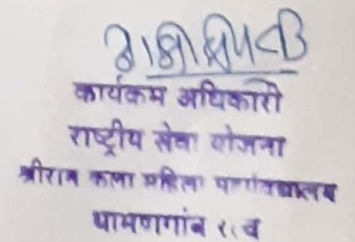 कार्यकम अधिकारी
राष्ट्रीय सेवा योजना
श्रीराम कला महिला महाविद्यालय
धामणगांव रेल्वे